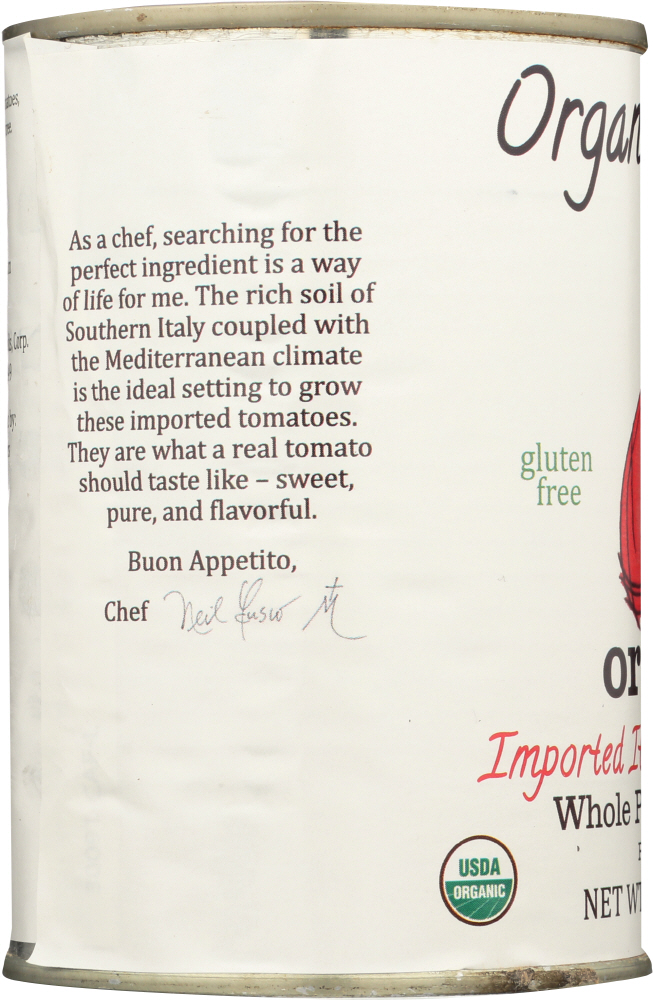 As a chef, searching for the
perfect ingredient is a way
of life for me. The rich soil of
Southern Italy coupled with
the Mediterranean climate
is the ideal setting to grow
these imported tomatoes.
They are what a real tomato
should taste like – sweet,
pure, and flavorful.
Buon Appetito,
Chef Neil Fusco
Organ
gluten
free
or
Imported
Whole
USDA
ORGANIC
NET WT
Corp.
by: